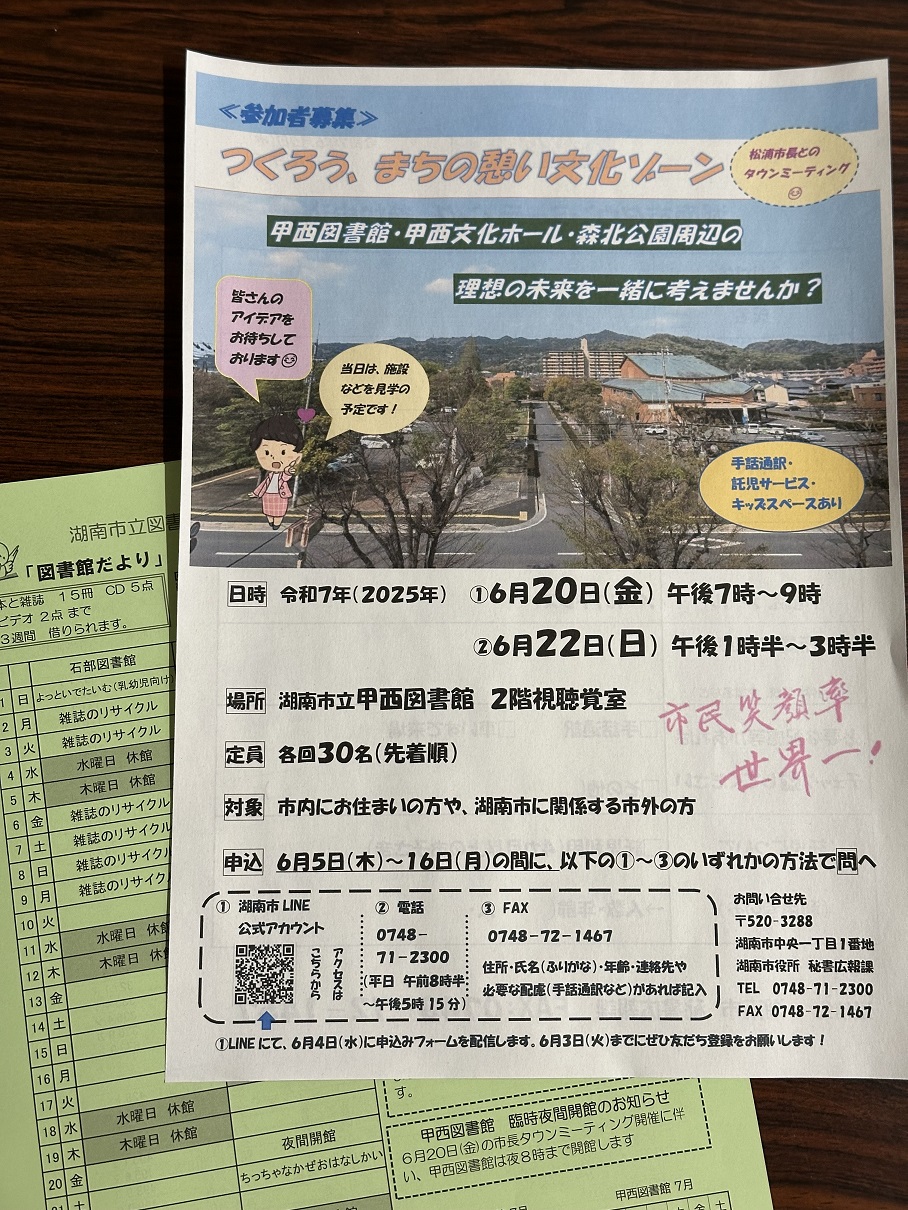 ≪参加者募集≫
つくろう、まちの憩い文化ゾーン
松浦市長との
タウンミーティング
甲西図書館・甲西文化ホール・森北公園周辺の
理想の未来を一緒に考えませんか？
皆さんの
アイデアを
お待ちして
おります
当日は、施設
などを見学の
予定です！
手話通訳・
託児サービス・
キッズスペースあり
日時 令和7年（2025年） ①6月20日（金） 午後7時～9時
②6月22日（日） 午後1時半～3時半
場所 湖南市立甲西図書館 2階視聴覚室
定員 各回30名（先着順）
対象 市内にお住まいの方や、湖南市に関係する市外の方
市民笑顔率
世界一！
申込 6月5日（木）～16日（月）の間に、以下の①～③のいずれかの方法で問へ
① 湖南市LINE
公式アカウント
アクセスは
こちらから
② 電話
0748－
71－2300
（平日 午前8時半
～午後5時15分）
③ FAX
0748－72－1467
住所・氏名（ふりがな）・年齢・連絡先や
必要な配慮（手話通訳など）があれば記入
お問い合せ先
〒520-3288
湖南市中央一丁目1番地
湖南市役所 秘書広報課
TEL 0748-71-2300
FAX 0748-72-1467
①LINEにて、6月4日（水）に申込みフォームを配信します。6月3日（火）までにぜひ友だち登録をお願いします！
湖南市立図書
「図書館だより」
本と雑誌 15冊 CD 5点
ビデオ 2点 まで
3週間 借りられます。
石部図書館
1 日 よっといでたいむ（乳幼児向け）
2 月 雑誌のリサイクル
3 火 雑誌のリサイクル
4 水 水曜日 休館
5 木 木曜日 休館
6 金 雑誌のリサイクル
7 土 雑誌のリサイクル
8 日 雑誌のリサイクル
9 月 雑誌のリサイクル
10 火
11 水 水曜日 休館
12 木 木曜日 休
13 金
14 土
15 日
16 月
17 火
18 水 水曜日 休館
19 木 木曜日 休館 夜間開館
20 金 ちっちゃなかぜおはなしかい
21 土
す。
甲西図書館 臨時夜間開館のお知らせ
6月20日（金）の市長タウンミーティング開催に伴
い、甲西図書館は夜8時まで開館します
甲西図書館 7月
7月
金 土